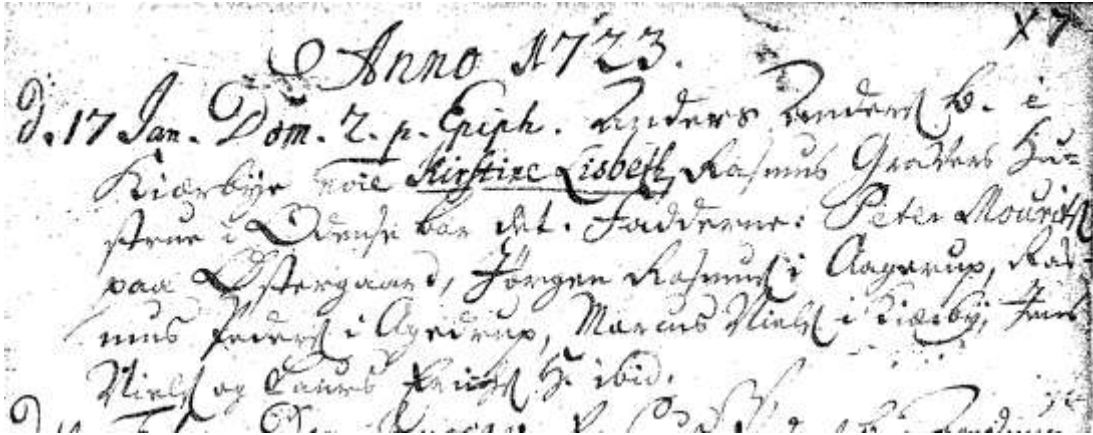 Anno 1723.
X 7
d. 17 Jan. Dom. 2. p. Epiph. Anders Anders b. i
Kiærbÿe Kirstine Lisbeth, Rasmus Gravers Hu=
strue i Odense bar det. Fadderne: Peter Mourits
paa Østergaard, Jørgen Rasmus i Aagerup, Ras=
mus Peders i Agedrup, Marcus Niels i Kiærbÿ, Jens
Niels og Laurs H. ibid.